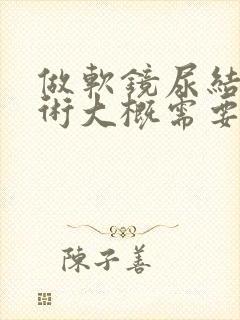 做軟鏡尿結
術大概需要
陳子善